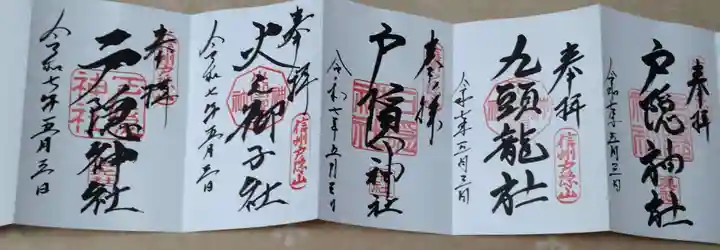 奉拝
戸隠神社
令和七年五月三日
奉拝
九頭龍社
信州戸隠山
令和七年五月三日
奉拝
戸隠神社
令和七年五月三日
奉拝
火之御子社
信州戸隠山
令和七年五月三日
奉拝
戸隠神社
令和七年五月三日